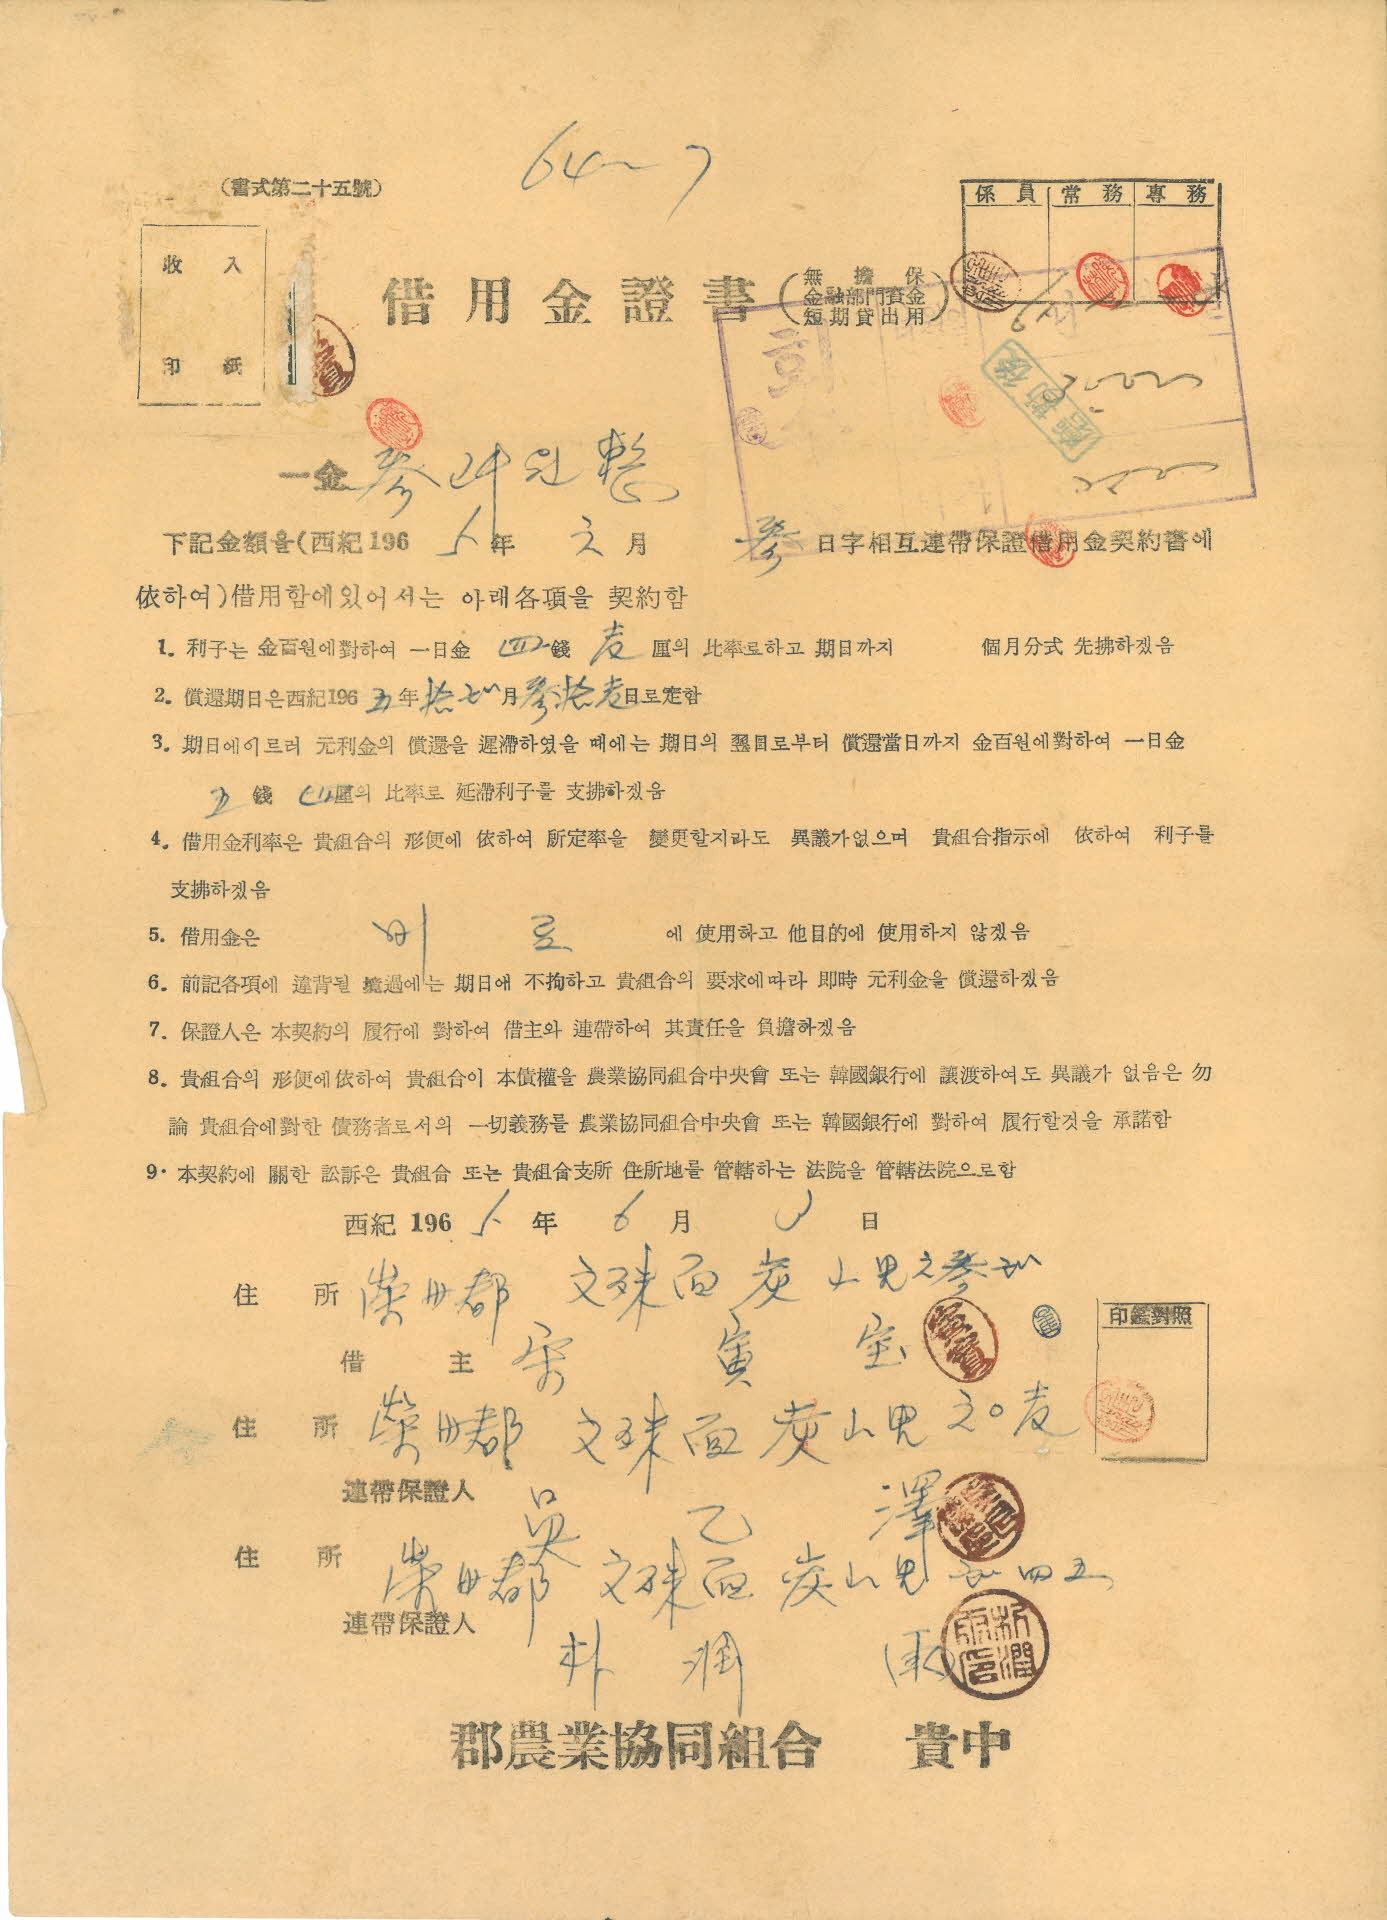 64~7
(書式第二十五號)
係員 常務 專務
收入
印紙
借用金證書 (無擔保 金融部門資金 短期貸出用)
一金 參 원 整
下記金額을(西紀196 5年 六月 參 日字相互連帶保證借用金契約書에
依하여)借用함에있어서는 아래各項을 契約함
1. 利子는 金百원에對하여 一日金 四錢 厘의 比率로하고 期日까지 個月分式 先拂하겠음
2. 償還期日은西紀196五年拾 月參拾 日로定함
3. 期日에이르러 元利金의 償還을 遲滯하였을 때에는 期日의 翌日로부터 償還當日까지 金百원에對하여 一日金
五 錢 四厘의 比率로 延滯利子를 支拂하겠음
4. 借用金利率은 貴組合의 形便에 依하여 所定率을 變更할지라도 異議가없으며 貴組合指示에 依하여 利子를
支拂하겠음
5. 借用金은 비료 에 使用하고 他目的에 使用하지 않겠음
6. 前記各項에 違背될 境遇에는 期日에 不拘하고 貴組合의 要求에따라 即時 元利金을 償還하겠음
7. 保證人은 本契約의 履行에 對하여 借主와 連帶하여 其責任을 負擔하겠음
8. 貴組合의 形便에依하여 貴組合이 本債權을 農業協同組合中央會 또는 韓國銀行에 讓渡하여도 異議가 없음은 勿
論 貴組合에對한 債務者로서의 一切義務를 農業協同組合中央會 또는 韓國銀行에 對하여 履行할것을 承諾함
9. 本契約에 關한 訟訴은 貴組合 또는 貴組合支所 住所地를 管轄하는 法院을 管轄法院으로함
西紀 196 5 年 6 月 3 日
住所 榮州郡 文殊面 炭山里
印鑑對照
借主 宋寅宝
住所 榮州郡 文殊面 炭山里
連帶保證人 吳乙澤
住所 榮州郡 文殊面 炭山里 四五
連帶保證人 朴潤
郡農業協同組合 貴中